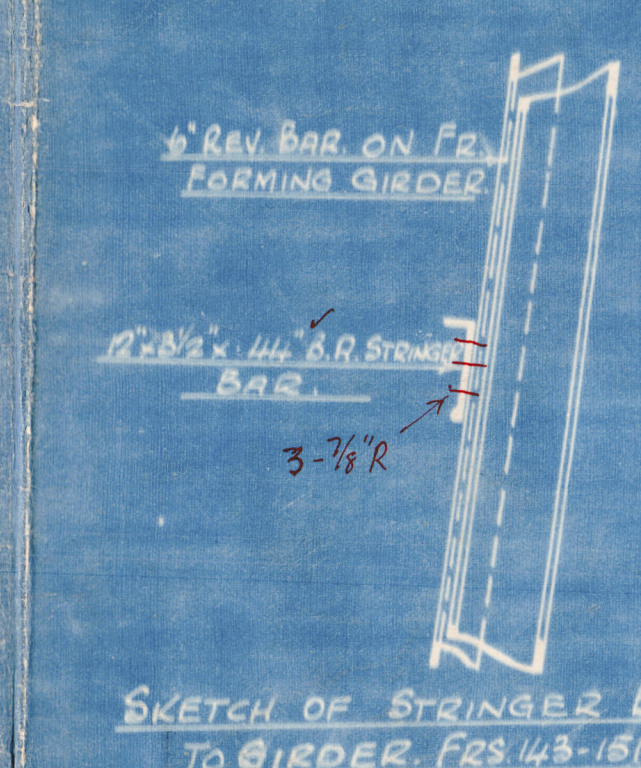 6" REV. BAR. ON FR.
FORMING GIRDER.
12" x 3½" x .44" B.A. STRINGER
BAR.
3-⅞"R
SKETCH OF STRINGER
TO GIRDER. FRS. 143-151